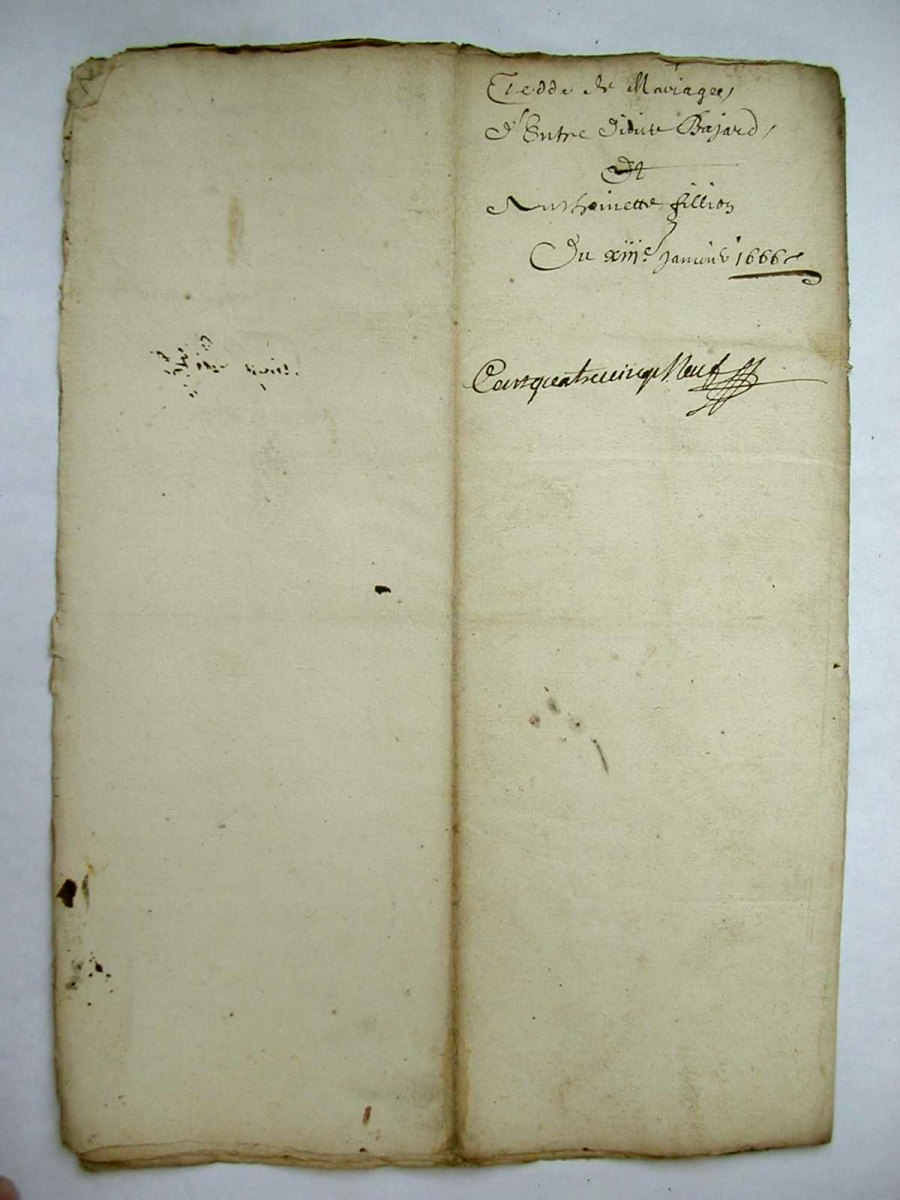 de Mariage
D'Entre Bajard
Et
Anthoinette fillion
Du xiii^e Janvier 1666
Centquatrevingt Neuf